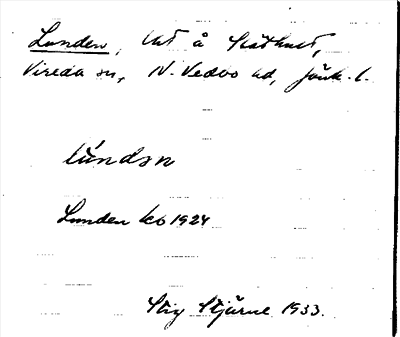 Lunden, tht å Släthult,
Vireda sn, N. Vedbo hd, Jönk. l.
lúndən
Lunden kb 1924
Stig Stjärne 1933.